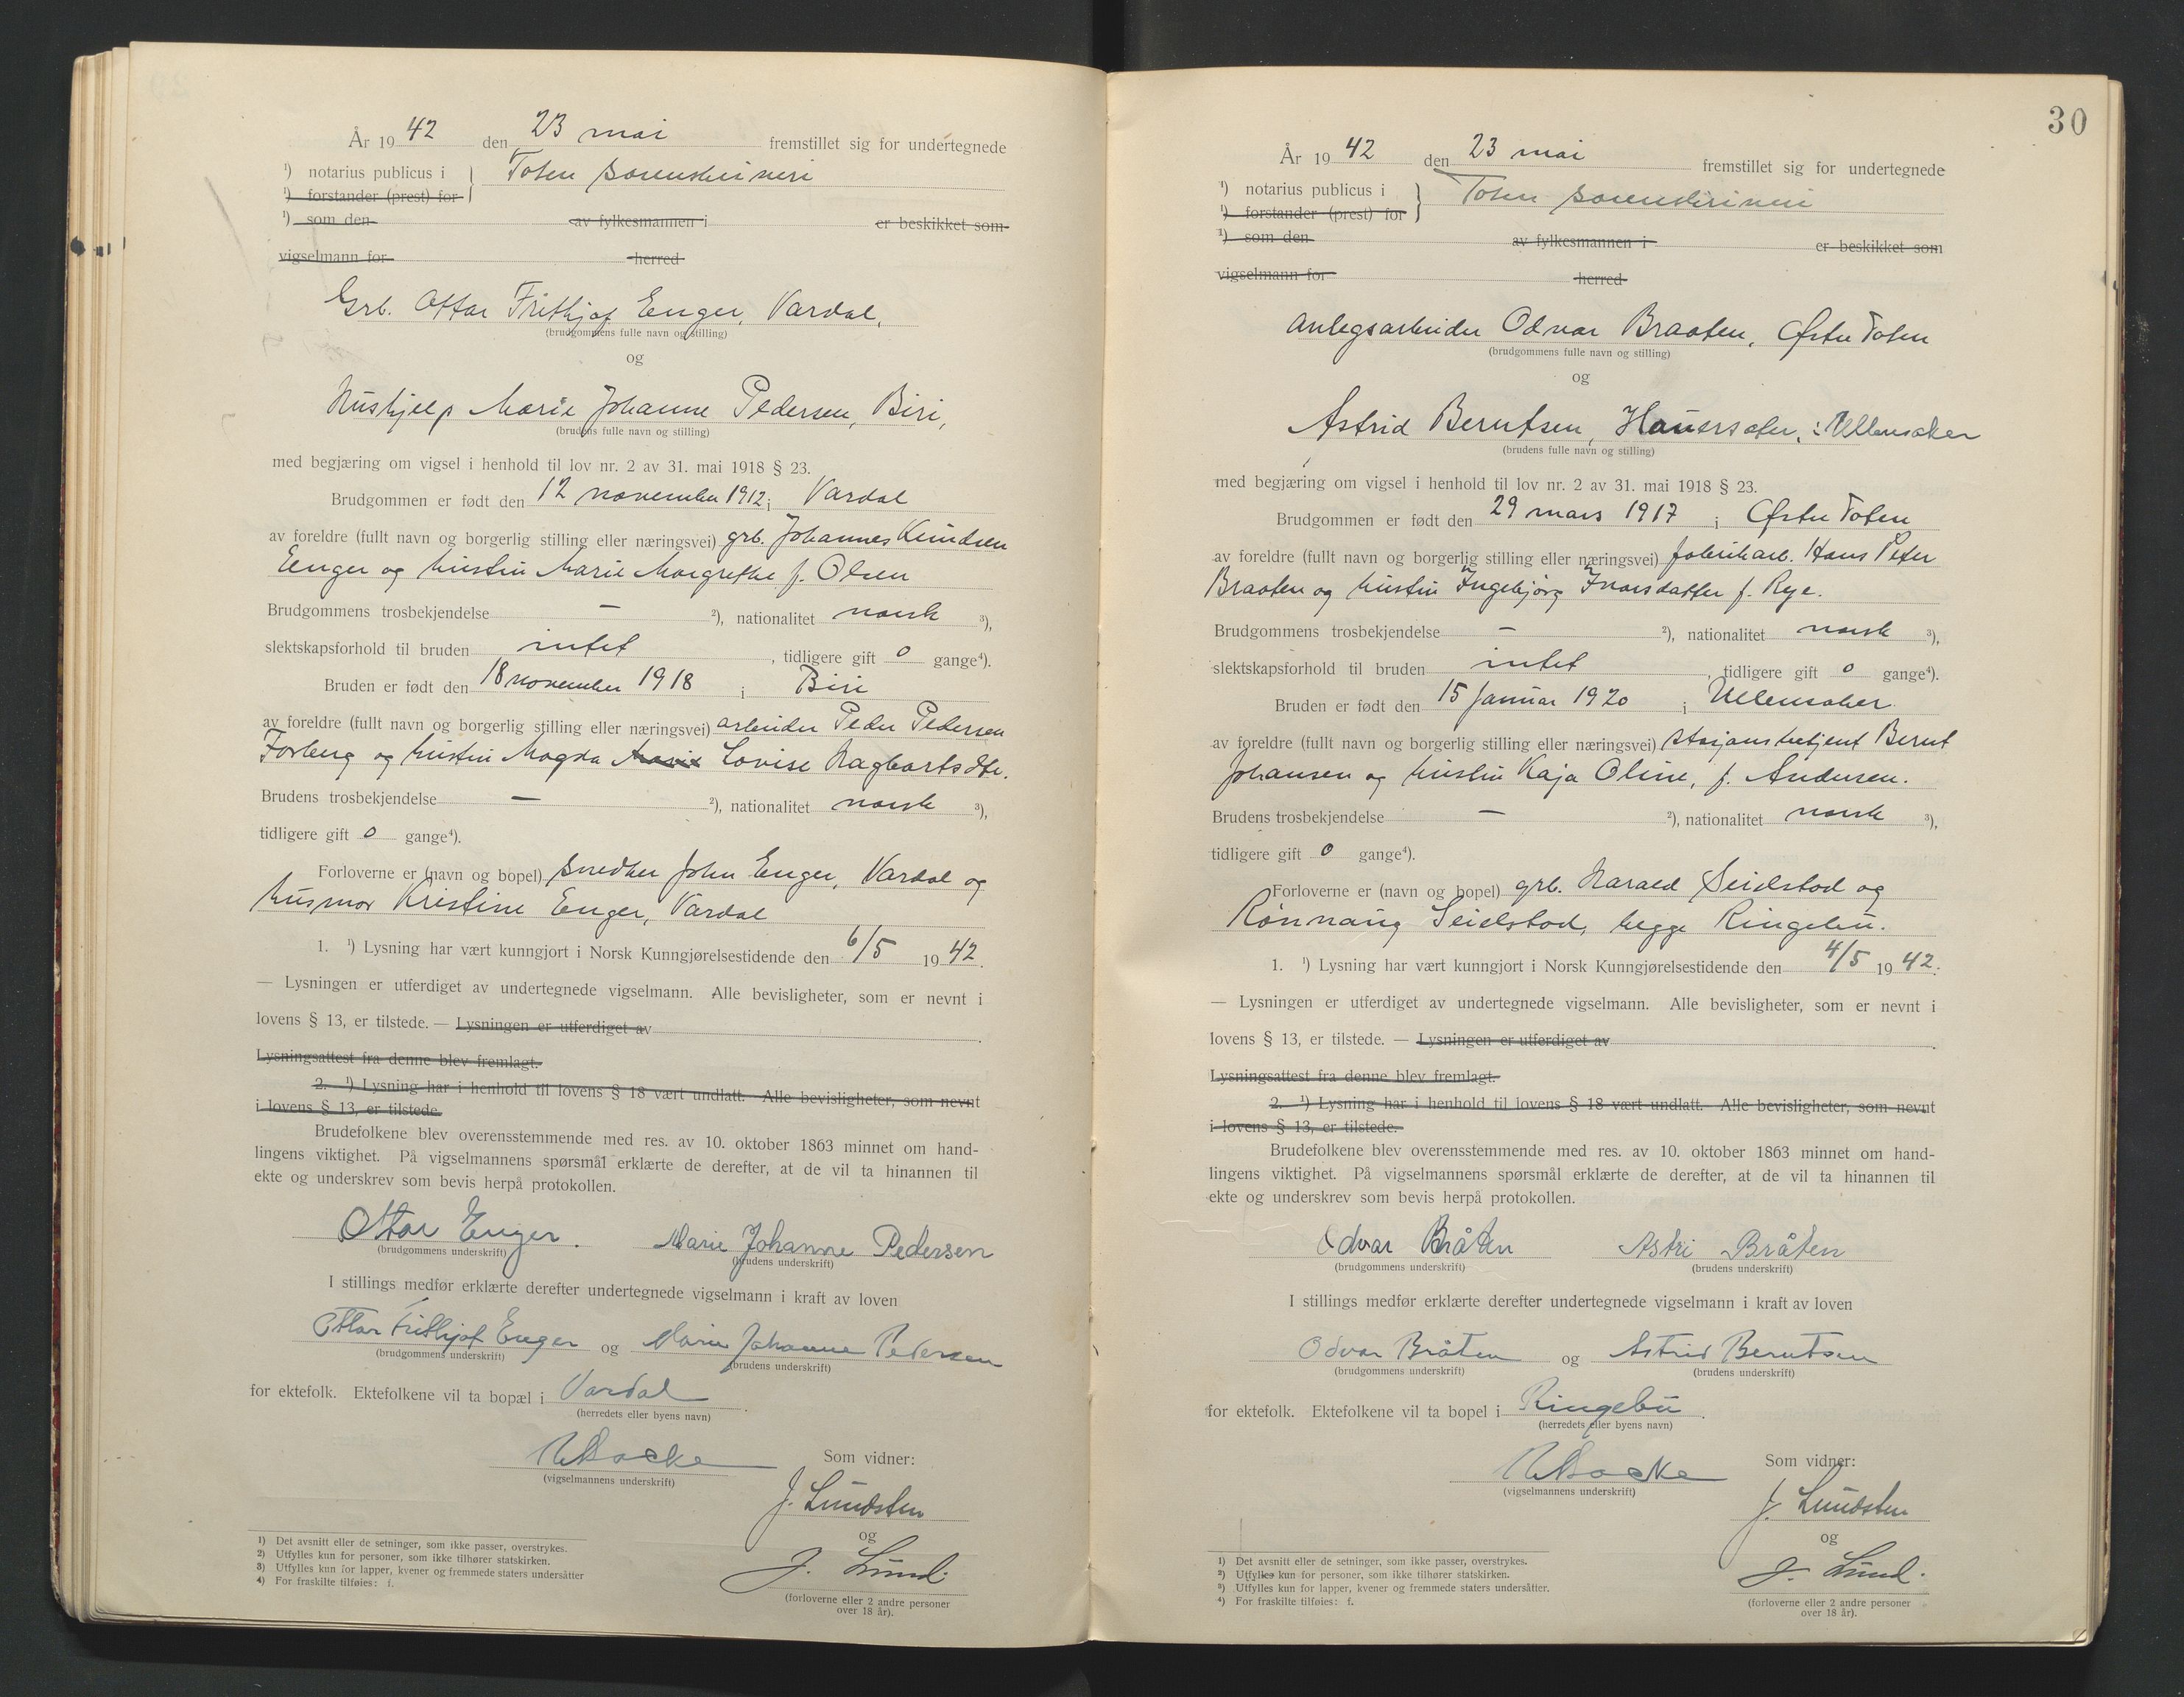 År 1942 den 23 mai fremstillet sig for undertegnede
¹) notarius publicus i } Toten sorenskriveri
¹) forstander (prest) for
¹) som den av fylkesmannen i er beskikket som
vigselmann for herred
Grb. Ottar Frithjof Enger, Vardal,
(brudgommens fulle navn og stilling)
og
Hushjelp Marie Johanne Pedersen, Biri,
(brudens fulle navn og stilling)
med begjæring om vigsel i henhold til lov nr. 2 av 31. mai 1918 § 23.
Brudgommen er født den 12 november 1912 i Vardal
av foreldre (fullt navn og borgerlig stilling eller næringsvei) grb. Johannes Knudsen
Enger og hustru Marie Margrethe f. Olsen
Brudgommens trosbekjendelse — ²), nationalitet norsk ³),
slektskapsforhold til bruden intet, tidligere gift 0 gange⁴).
Bruden er født den 18 november 1918 i Biri
av foreldre (fullt navn og borgerlig stilling eller næringsvei) arbeider Peder Pedersen
Forberg og hustru Magda Lovise Hagbartsdtr.
Brudens trosbekjendelse — ²), nationalitet norsk ³),
tidligere gift 0 gange⁴).
Forloverne er (navn og bopel) snedker John Enger, Vardal og
husmor Kristine Enger, Vardal
1. ¹) Lysning har vært kunngjort i Norsk Kunngjørelsestidende den 6/5 1942.
— Lysningen er utferdiget av undertegnede vigselmann. Alle bevisligheter, som er nevnt i
lovens § 13, er tilstede. — Lysningen er utferdiget av .
Lysningsattest fra denne blev fremlagt.
2. ¹) Lysning har i henhold til lovens § 18 vært undlatt. Alle bevisligheter, som nevnt
i lovens § 13, er tilstede.
Brudefolkene blev overensstemmende med res. av 10. oktober 1863 minnet om hand-
lingens viktighet. På vigselmannens spørsmål erklærte de derefter, at de vil ta hinannen til
ekte og underskrev som bevis herpå protokollen.
Ottar Enger. Marie Johanne Pedersen
(brudgommens underskrift) (brudens underskrift)
I stillings medfør erklærte derefter undertegnede vigselmann i kraft av loven
Ottar Frithjof Enger og Marie Johanne Pedersen
(brudgommens underskrift) (brudens underskrift)
for ektefolk. Ektefolkene vil ta bopæl i Vardal.
(herredets eller byens navn)
Som vidner:
(vigselmannens underskrift)
J. Lundsten
og
J. Lund.
(forloverne eller 2 andre personer
over 18 år).
1) Det avsnitt eller de setninger, som ikke passer, overstrykes.
2) Utfylles kun for personer, som ikke tilhører statskirken.
3) Utfylles kun for lapper, kvener og fremmede staters undersåtter
4) For fraskilte tilføies: f.
30
År 1942 den 23 mai fremstillet sig for undertegnede
¹) notarius publicus i } Toten sorenskriveri
¹) forstander (prest) for
¹) som den av fylkesmannen i er beskikket som
vigselmann for herred
Anlegsarbeider Odvar Braaten, Østre Toten
(brudgommens fulle navn og stilling)
og
Astrid Berntsen, Hauerseter, : Ullensaker
(brudens fulle navn og stilling)
med begjæring om vigsel i henhold til lov nr. 2 av 31. mai 1918 § 23.
Brudgommen er født den 29 mars 1917 i Østre Toten
av foreldre (fullt navn og borgerlig stilling eller næringsvei) fabrikarb. Hans Peter
Braaten og hustru Ingebjørg Ivarsdatter f. Rye.
Brudgommens trosbekjendelse — ²), nationalitet norsk ³),
slektskapsforhold til bruden intet, tidligere gift 0 gange⁴).
Bruden er født den 15 januar 1920 i Ullensaker
av foreldre (fullt navn og borgerlig stilling eller næringsvei) stasjonsbetjent Bernt
Johansen og hustru Kaja Oline, f. Andersen.
Brudens trosbekjendelse — ²), nationalitet norsk ³),
tidligere gift 0 gange⁴).
Forloverne er (navn og bopel) grb. Harald Seielstad og
Rønnaug Seielstad, begge Ringebu.
1. ¹) Lysning har vært kunngjort i Norsk Kunngjørelsestidende den 4/5 1942.
— Lysningen er utferdiget av undertegnede vigselmann. Alle bevisligheter, som er nevnt i
lovens § 13, er tilstede. — Lysningen er utferdiget av .
Lysningsattest fra denne blev fremlagt.
2. ¹) Lysning har i henhold til lovens § 18 vært undlatt. Alle bevisligheter, som nevnt
i lovens § 13, er tilstede.
Brudefolkene blev overensstemmende med res. av 10. oktober 1863 minnet om hand-
lingens viktighet. På vigselmannens spørsmål erklærte de derefter, at de vil ta hinannen til
ekte og underskrev som bevis herpå protokollen.
Odvar Bråten Astri Bråten
(brudgommens underskrift) (brudens underskrift)
I stillings medfør erklærte derefter undertegnede vigselmann i kraft av loven
Odvar Bråten og Astrid Berntsen
(brudgommens underskrift) (brudens underskrift)
for ektefolk. Ektefolkene vil ta bopel i Ringebu.
(herredets eller byens navn)
Som vidner:
(vigselmannens underskrift)
J. Lundsten
og
J. Lund.
(forloverne eller 2 andre personer
over 18 år).
1) Det avsnitt eller de setninger, som ikke passer, overstrykes.
2) Utfylles kun for personer, som ikke tilhører statskirken.
3) Utfylles kun for lapper, kvener og fremmede staters undersåtter.
4) For fraskilte tilføies: f.